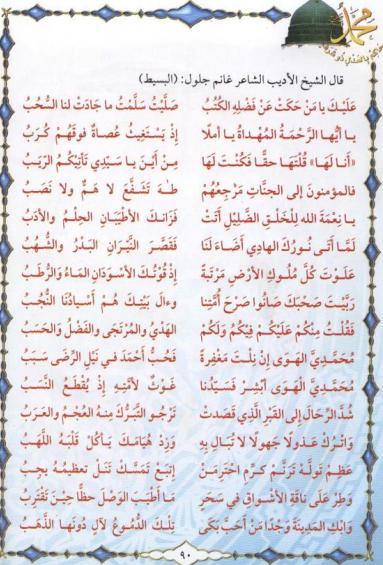 محمد
قال الشيخ الأديب الشاعر غانم جلول: (البسيط)
عَلَيْكَ يا مَنْ حَكَتْ عَنْ فَضْلِهِ الكُتُبُ صَلَّيْتُ سَلَّمْتُ ما جَادَتْ لنا السُّحُبُ
يا أيُّها الرَّحْمَةُ المُهْداةُ يا أملًا إذْ يَسْتَغِيثُ عُصاةٌ فوقَهُمْ كُرَبُ
«أنا لها» قُلْتَها حقًّا فكُنْتَ لَهَا مِنْ أَيْنَ يا سَيِّدِي تأتِيكُمُ الرِّيَبُ
فالمؤمنونَ إلى الجنَّاتِ مَرْجِعُهُمْ طـهَ تَشَفَّعَ لا هَمٌّ ولا نَصَبُ
يا نِعْمَةَ اللهِ لِلْخَلْقِ الضَّلِيلِ أَتَتْ فَزَانَكَ الأَطْيَبَانِ الحِلْمُ والأَدَبُ
لَمَّا أتَى نُورُكَ الهادِي أَضَاءَ لَنَا فَقَصَّرَ النَّيِّرَانِ البَدْرُ والشُّهُبُ
عَلَوْتَ كُلَّ مُلُوكِ الأَرْضِ مَرْتَبَةً إذْ قُوتُكَ الأَسْوَدَانِ المَاءُ والرُّطَبُ
رَبَّيْتَ صَحْبَكَ صَانُوا صَرْحَ أُمَّتِنا وءالُ بَيْتِكَ هُمْ أَسْيادُنَا النُّجُبُ
فَقُلْتُ مِنْكُمْ عَلَيْكُمْ فِيكُمُ ولَكُمْ الهَدْيُ والمُرْتَجَى والفَضْلُ والحَسَبُ
مُحَمَّدِيَّ الهَوَى إنْ نِلْتَ مَغْفِرَةً فَحُبُّ أحْمَدَ في نَيْلِ الرِّضَى سَبَبُ
مُحَمَّدِيَّ الهَوَى أَبْشِرْ فَسَيِّدُنا غَوْثٌ لأُمَّتِهِ إذْ يُقْطَعُ النَّسَبُ
شُدَّ الرِّحَالَ إلى القَبْرِ الَّذِي قَصَدَتْ تَرْجُو التَّبَرُّكَ مِنهُ العُجْمُ والعَرَبُ
واتْرُكْ عَذولًا جَهولًا لا تُبَالِ بِهِ وزِدْ هُيَامَكَ يَأْكُلْ قَلْبَهُ اللَّهَبُ
عَظِّمْ تَوَلَّهْ تَرَنَّمْ كَرِّمِ احْتَرِمَنْ اِتْبَعْ تَمَسَّكْ تَنَلْ تعظيمُهُ يَجِبُ
وطِرْ عَلَى نَاقَةِ الأَشْوَاقِ في سَحَرٍ مَا أَطْيَبَ الوَصْلَ حظًّا حِيْنَ يَقْتَرِبُ
وَابْكِ المَدِينَةَ وَجْدًا مَنْ أَحَبَّ بَكَى تِلْكَ الدُّمُوعُ لآلٍ دُونَها الذَّهَبُ
٩٠